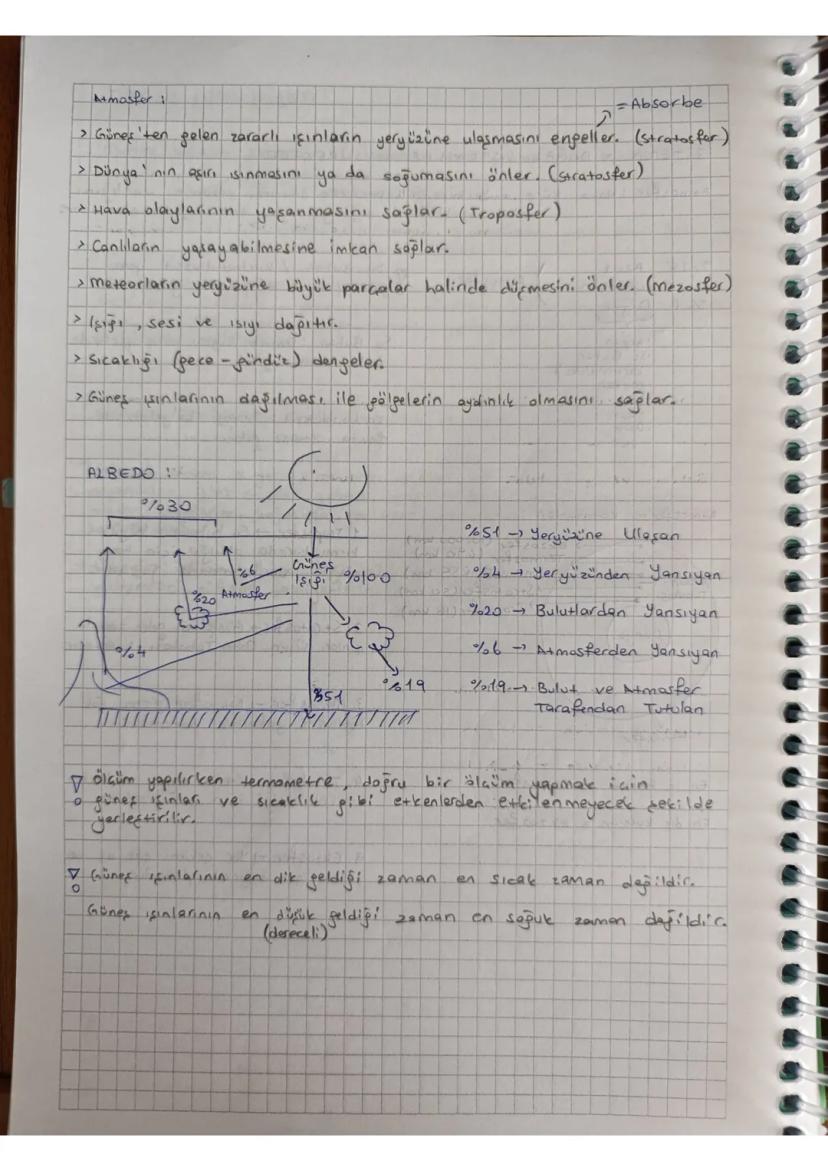 Atmosfer :
= Absorbe
> Güneş'ten gelen zararlı ışınların yeryüzüne ulaşmasını engeller. (Stratosfer)
> Dünya'nın aşırı ısınmasını ya da soğumasını önler. (Stratosfer)
> Hava olaylarının yaşanmasını sağlar. (Troposfer)
> Canlıların yaşayabilmesine imkan sağlar.
> Meteorların yeryüzüne büyük parçalar halinde düşmesini önler. (Mezosfer)
> Işığı, sesi ve ısıyı dağıtır.
> Sıcaklığı (gece - gündüz) dengeler.
> Güneş ışınlarının dağılması ile gölgelerin aydınlık olmasını sağlar.
ALBEDO :
%30
%6
Atmosfer
%20
Güneş
Işığı %100
%4
%19
%51
%51 → Yeryüzüne Ulaşan
%4 → Yeryüzünden Yansıyan
%20 → Bulutlardan Yansıyan
%6 → Atmosferden Yansıyan
%19 → Bulut ve Atmosfer
Tarafından Tutulan
Ölçüm yapılırken termometre, doğru bir ölçüm yapmak için
güneş ışınları ve sıcaklık gibi etkenlerden etkilenmeyecek şekilde
yerleştirilir.
Güneş ışınlarının en dik geldiği zaman en sıcak zaman değildir.
Güneş ışınlarının en düşük geldiği zaman en soğuk zaman değildir.
(dereceli)